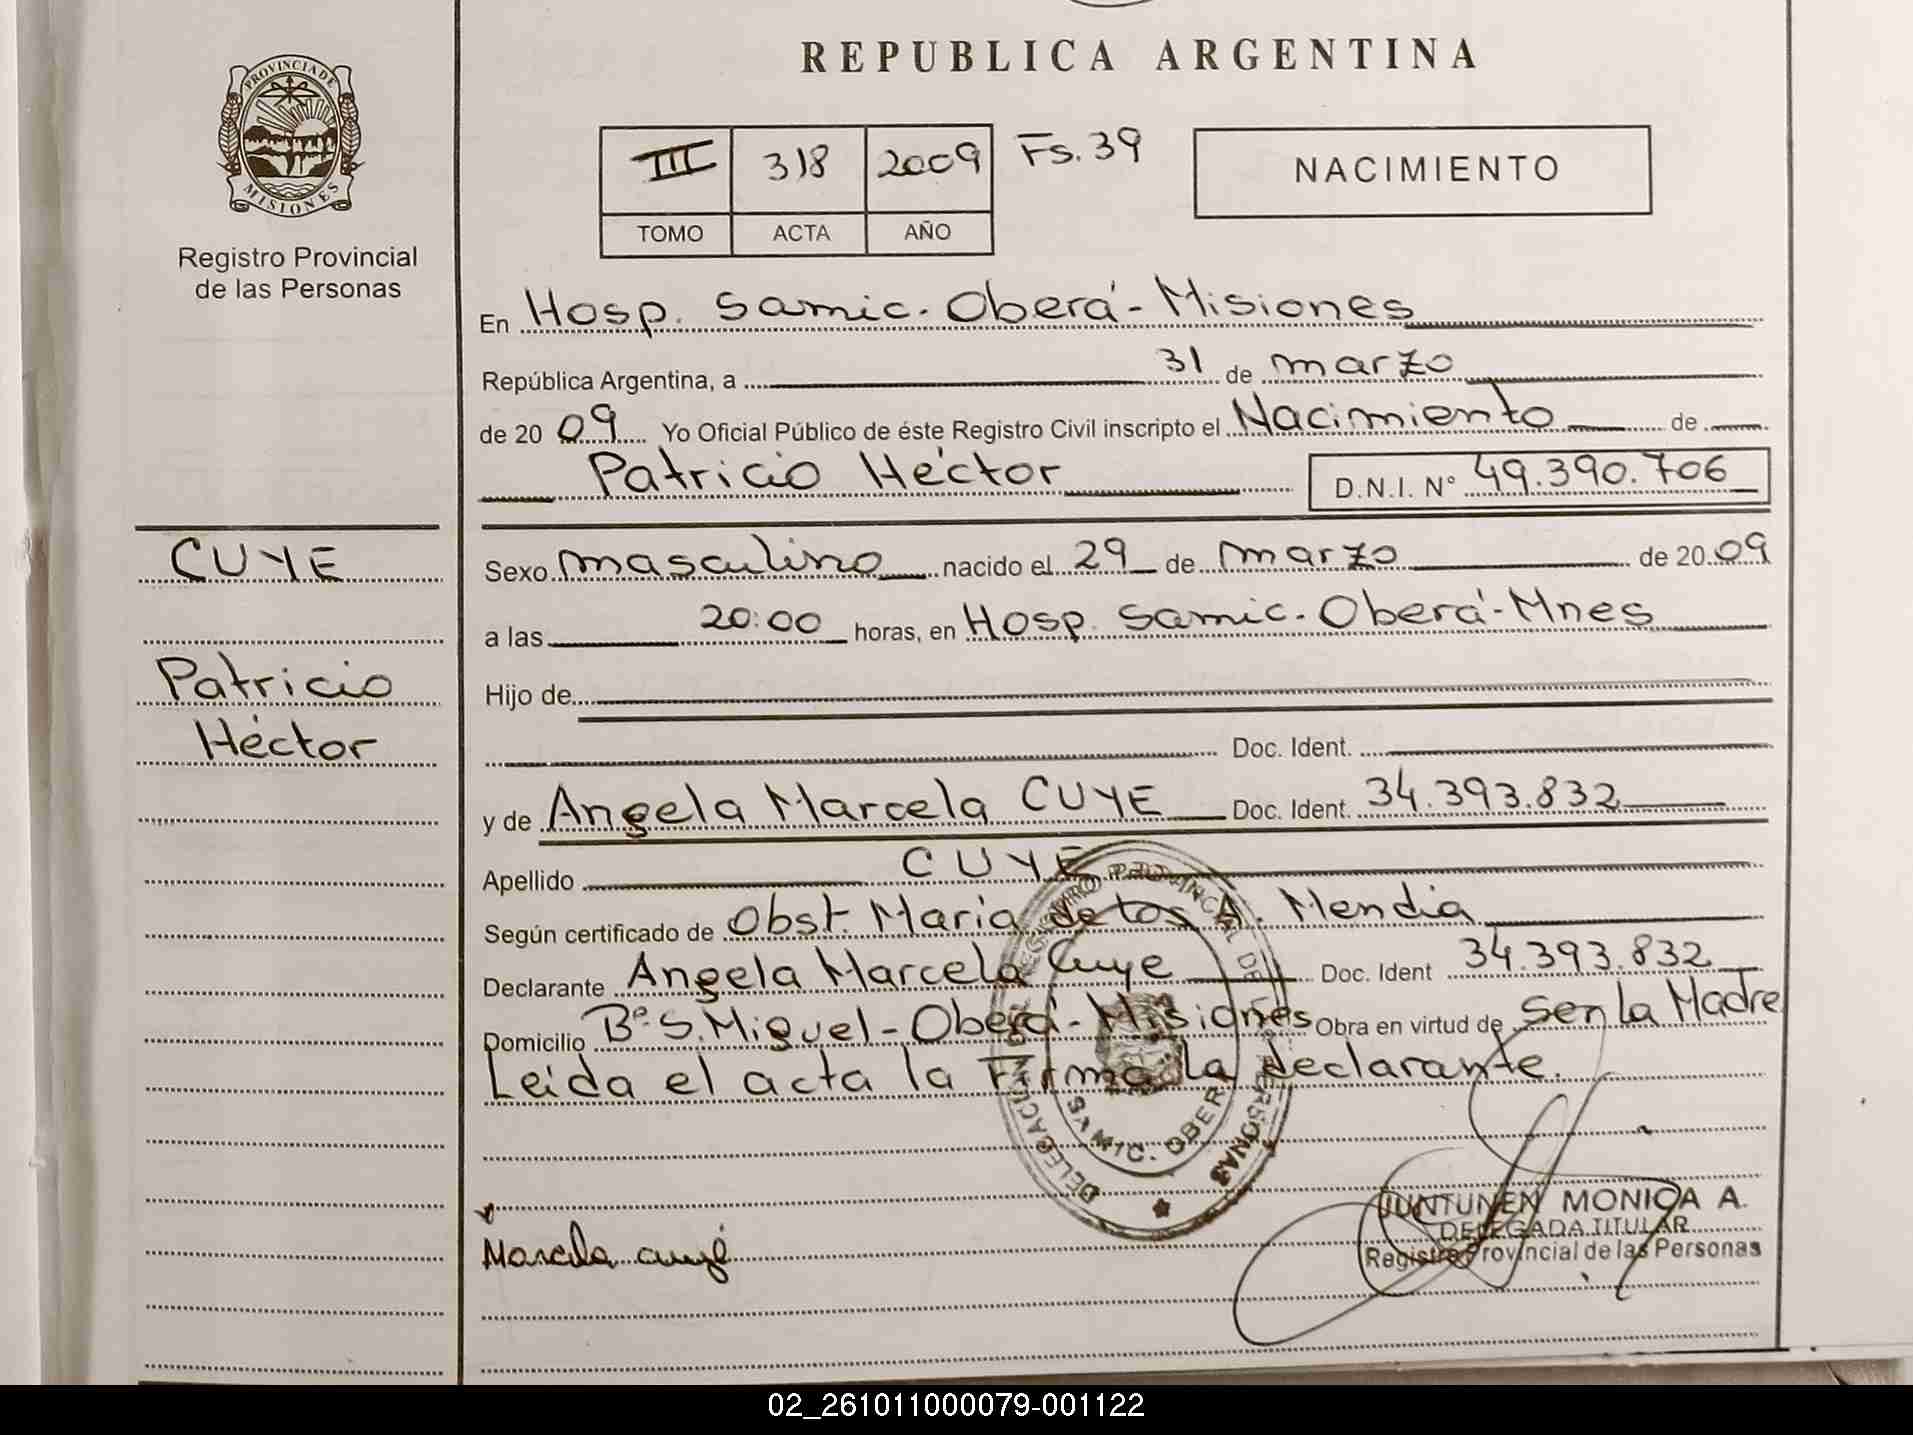 REPUBLICA ARGENTINA
PROVINCIA DE
MISIONES
Registro Provincial
de las Personas
III 318 2009 Fs. 39
TOMO ACTA AÑO
NACIMIENTO
En Hosp. Samic. Oberá - Misiones
República Argentina, a 31 de marzo
de 20 09 Yo Oficial Público de éste Registro Civil inscripto el Nacimiento de
Patricio Héctor D.N.I. N° 49.390.706
CUYE
Patricio
Héctor
Sexo masculino nacido el 29 de marzo de 20 09
a las 20:00 horas, en Hosp. Samic. Oberá - Mnes
Hijo de
Doc. Ident.
y de Angela Marcela CUYE Doc. Ident. 34.393.832
Apellido CUYE
Según certificado de Obst. Maria de los A. Mendia
Declarante Angela Marcela Cuye Doc. Ident 34.393.832
Domicilio B° S. Miguel - Oberá - Misiones Obra en virtud de Ser la Madre
Leída el acta la Firma la declarante.
REGISTRO PROVINCIAL DE LAS PERSONAS
DELEGACION
OBERA
Marcela cuyé
JUNTUNEN MONICA A.
DELEGADA TITULAR
Registro Provincial de las Personas
02_261011000079-001122